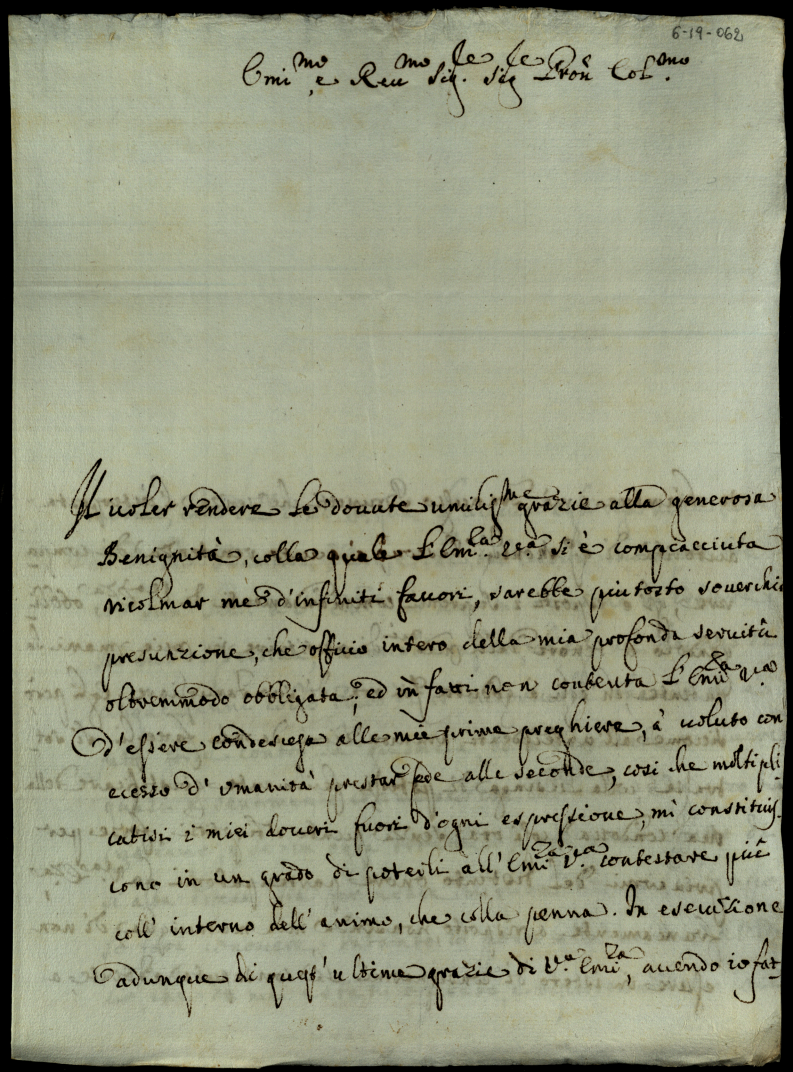 6-19-062
Emi.mo e Reu.mo Sig.re Sig.re Pron Col.mo
Il uoler rendere le douute umilis.me grazie alla generosa
Benignità, colla quale l'Em.za V.ra si è compiacciuta
ricolmar me d'infiniti fauori, sarebbe piutosto souerchia
presunzione, che officio intero della mia profonda seruitù
oltremmodo obbligata; ed in fatti non contenta l'Emi.za V.ra
d'essere condescesa alle mie prime preghiere, à uoluto con
ecesso d'umanità prestar fede alle seconde, così che moltipli-
catisi i miei doueri fuori d'ogni espressione, mi constituis-
cono in un grado di poterli all'Emi.za V.ra contestare più
coll'interno dell'animo, che colla penna. In esecuzione
adunque di quest'ultime grazie di V.ra Emi.za, auendo io fat-